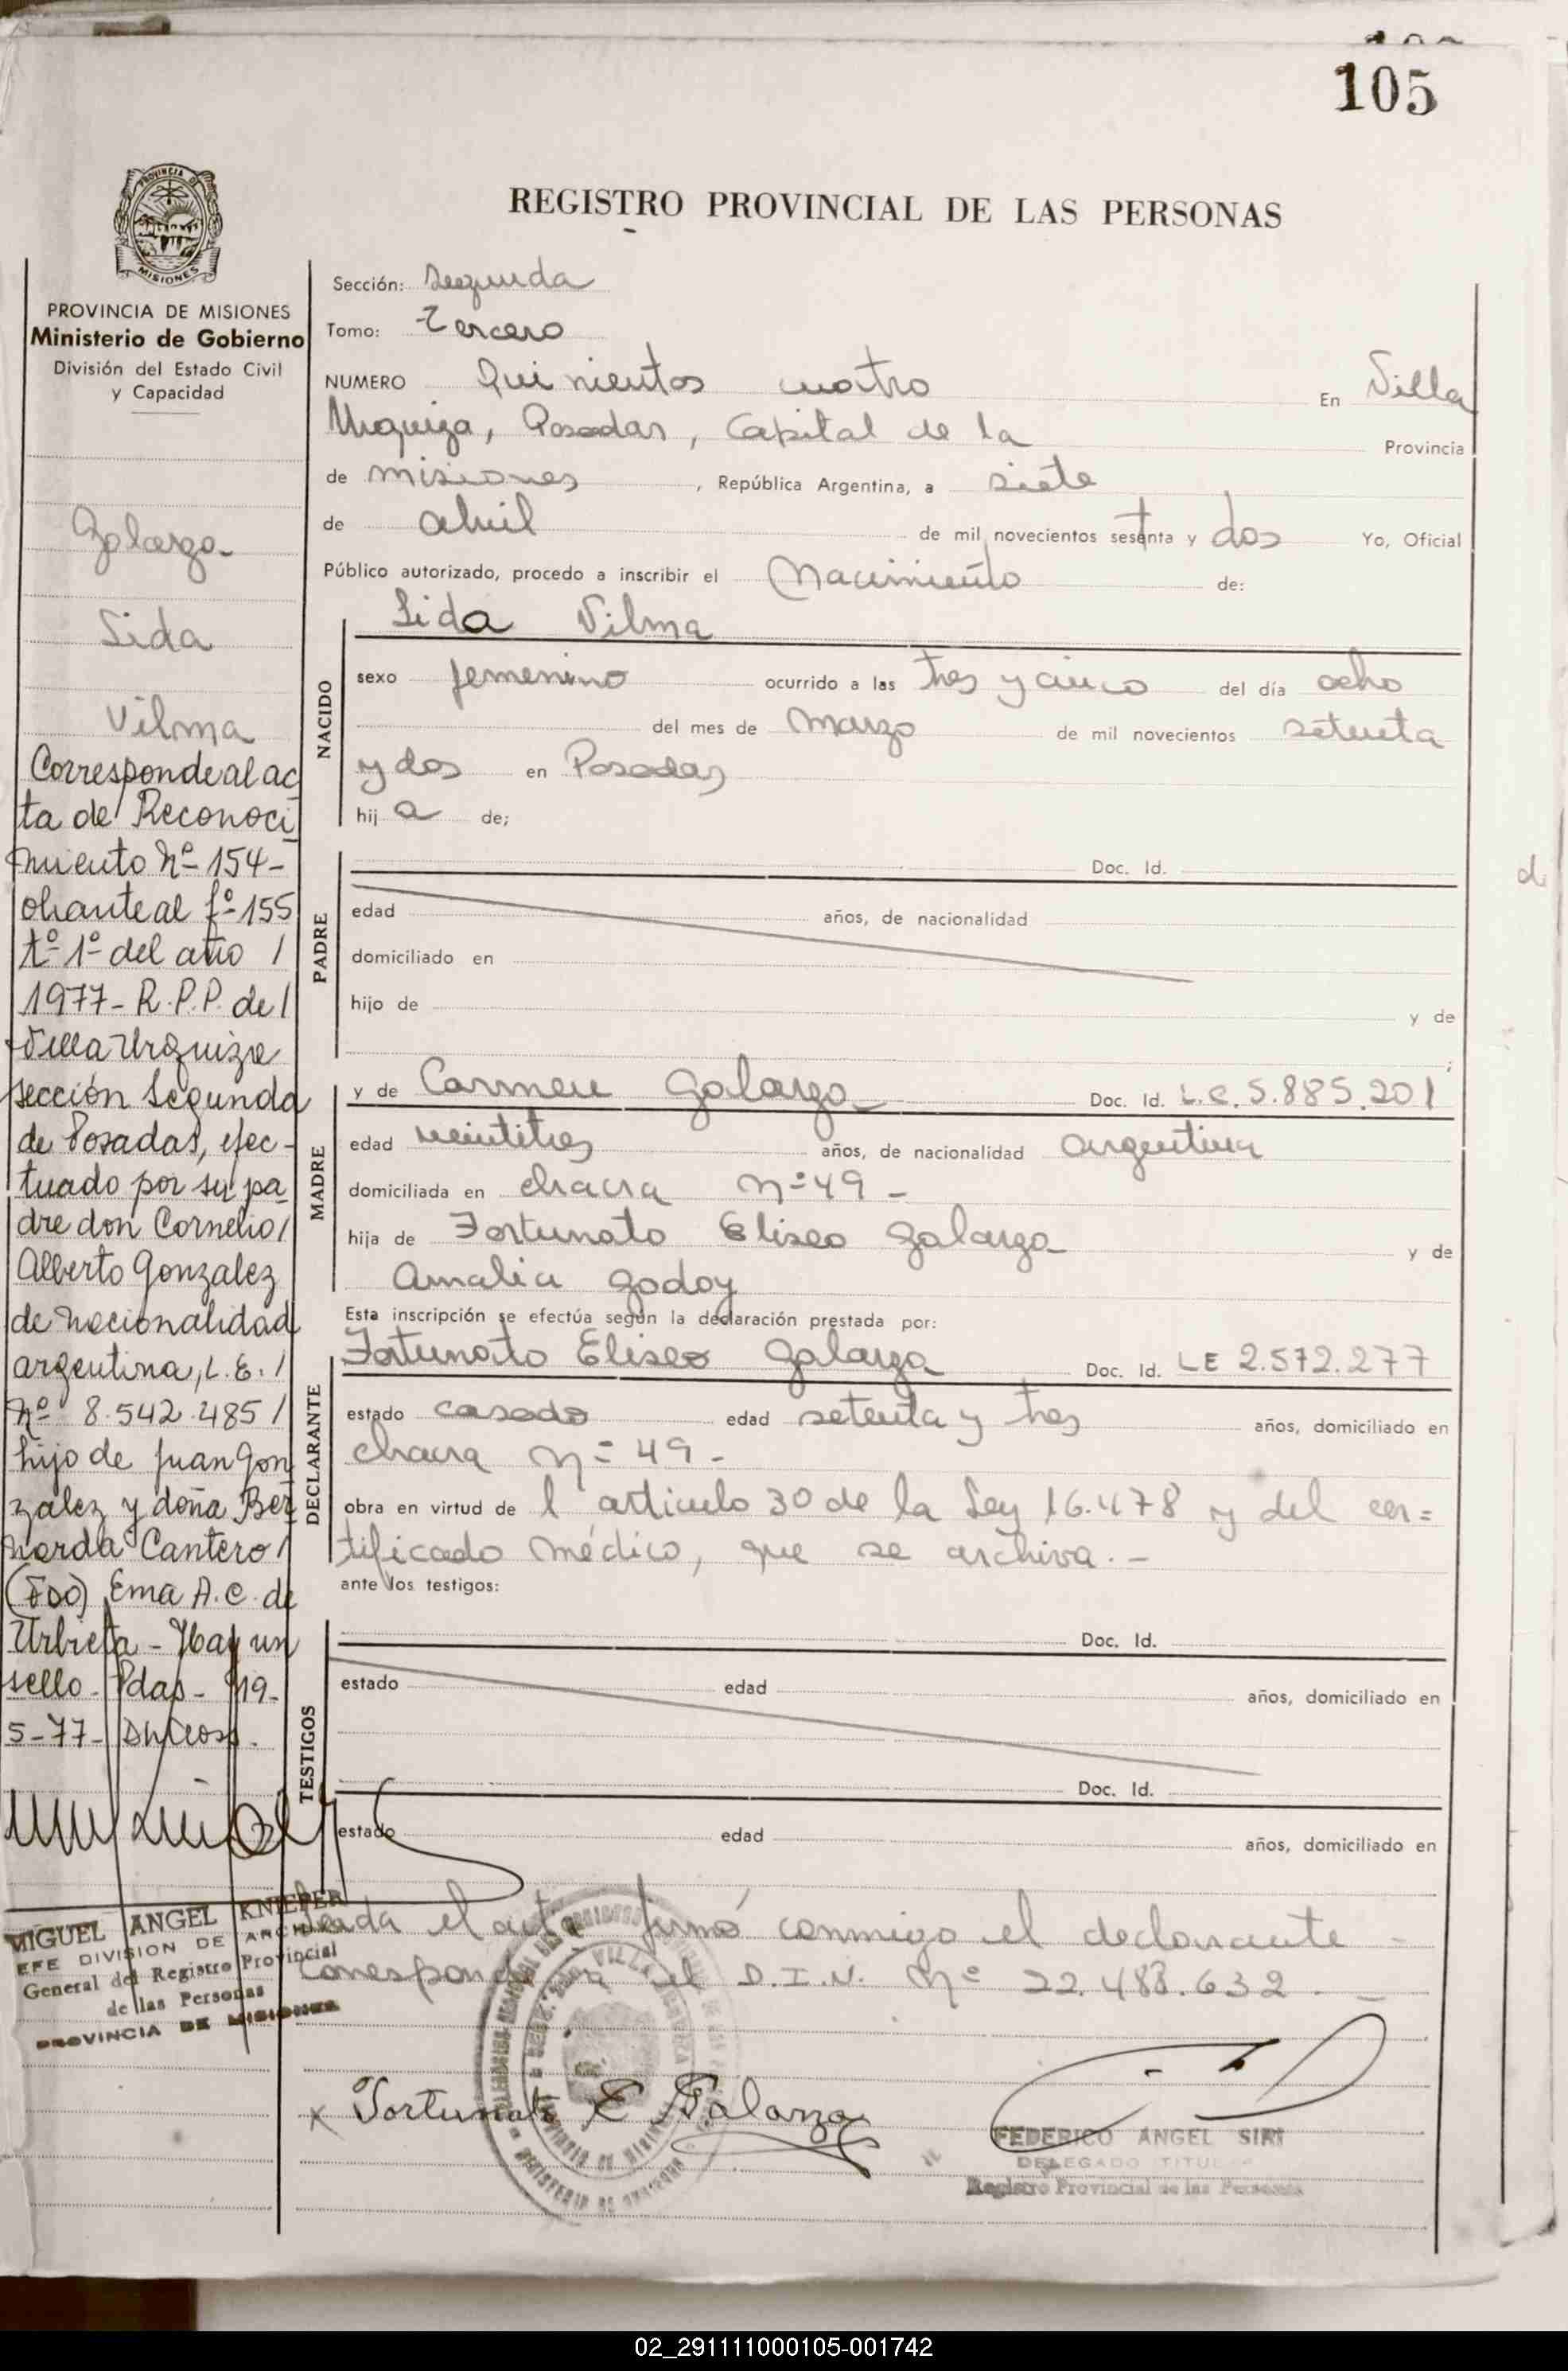 105
REGISTRO PROVINCIAL DE LAS PERSONAS
PROVINCIA DE MISIONES
Ministerio de Gobierno
División del Estado Civil
y Capacidad
Galarza
Lida
Vilma
Corresponde al ac
ta de Reconoci
miento Nº 154-
obrante al fº 155
tº 1º del año /
1977- R.P.P. de /
Villa Urquiza
sección Segunda
de Posadas, efec-
tuado por su pa
dre don Cornelio/
Alberto Gonzalez
de nacionalidad
argentina, L.E. /
Nº 8.542.485 /
hijo de Juan Gon
zalez y doña Ber
narda Cantero/
(FDO) Ema A.C. de
Urbieta - Hay un
sello - Pdas - 19-
5-77-
MIGUEL ANGEL KNIEPER
JEFE DIVISION DE ARCHIVO
General del Registro Provincial
de las Personas
PROVINCIA DE MISIONES
Sección: Segunda
Tomo: Tercero
NUMERO Quinientos cuatro En Villa
Urquiza, Posadas, Capital de la Provincia
de misiones, República Argentina, a siete
de abril de mil novecientos setenta y dos Yo, Oficial
Público autorizado, procedo a inscribir el Nacimiento de:
Lida Vilma
NACIDO
sexo femenino ocurrido a las tres y cinco del día ocho
del mes de Marzo de mil novecientos setenta
y dos en Posadas
hija de;
PADRE
Doc. Id.
edad años, de nacionalidad
domiciliado en
hijo de y de
MADRE
y de Carmen Galarza Doc. Id. L.C. 5.885.201
edad veintitres años, de nacionalidad argentina
domiciliada en chacra nº 49 -
hija de Fortunato Eliseo Galarza y de
Amalia Godoy
Esta inscripción se efectúa según la declaración prestada por:
DECLARANTE
Fortunato Eliseo Galarza Doc. Id. LE 2.572.277
estado casado edad setenta y tres años, domiciliado en
chacra nº 49 -
obra en virtud de l articulo 30 de la Ley 16.478 y del cer=
tificado médico, que se archiva. -
ante los testigos:
TESTIGOS
Doc. Id.
estado edad años, domiciliado en
Doc. Id.
estado edad años, domiciliado en
Leida el acta firmó conmigo el declarante -
Corresponde el D.I.N. nº 22.483.632. -
x Fortunato E Galarza
FEDERICO ANGEL SIRI
DELEGADO TITULAR
Registro Provincial de las Personas
02_291111000105-001742